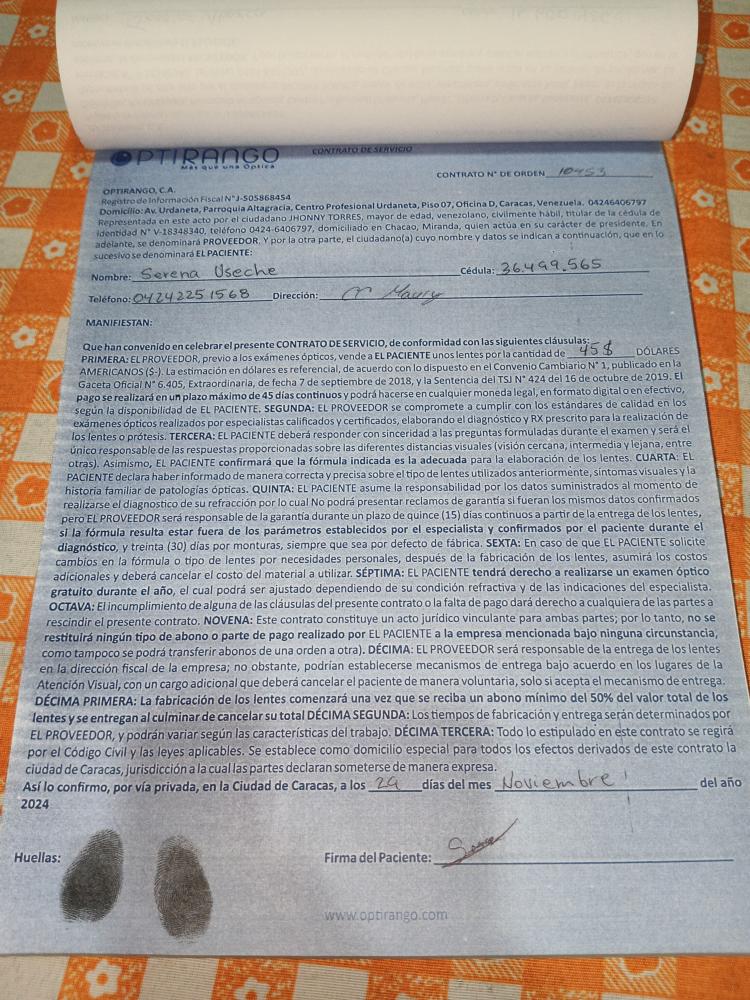 OPTIRANGO
Más que una Óptica
CONTRATO DE SERVICIO
CONTRATO N° DE ORDEN 10453
OPTIRANGO, C.A.
Registro de Información Fiscal N°J-505868454
Domicilio: Av. Urdaneta, Parroquia Altagracia, Centro Profesional Urdaneta, Piso 07, Oficina D, Caracas, Venezuela. 04246406797
Representada en este acto por el ciudadano JHONNY TORRES, mayor de edad, venezolano, civilmente hábil, titular de la cédula de
identidad N° V-18348340, teléfono 0424-6406797, domiciliado en Chacao, Miranda, quien actúa en su carácter de presidente. En
adelante, se denominará PROVEEDOR. Y por la otra parte, el ciudadano(a) cuyo nombre y datos se indican a continuación, que en lo
sucesivo se denominará EL PACIENTE:
Nombre: Serena Useche Cédula: 36.499.565
Teléfono: 04242251568 Dirección:
MANIFIESTAN:
Que han convenido en celebrar el presente CONTRATO DE SERVICIO, de conformidad con las siguientes cláusulas:
PRIMERA: EL PROVEEDOR, previo a los exámenes ópticos, vende a EL PACIENTE unos lentes por la cantidad de 45$ DÓLARES
AMERICANOS ($-). La estimación en dólares es referencial, de acuerdo con lo dispuesto en el Convenio Cambiario N° 1, publicado en la
Gaceta Oficial N° 6.405, Extraordinaria, de fecha 7 de septiembre de 2018, y la Sentencia del TSJ N° 424 del 16 de octubre de 2019. El
pago se realizará en un plazo máximo de 45 días continuos y podrá hacerse en cualquier moneda legal, en formato digital o en efectivo,
según la disponibilidad de EL PACIENTE. SEGUNDA: EL PROVEEDOR se compromete a cumplir con los estándares de calidad en los
exámenes ópticos realizados por especialistas calificados y certificados, elaborando el diagnóstico y RX prescrito para la realización de
los lentes o prótesis. TERCERA: EL PACIENTE deberá responder con sinceridad a las preguntas formuladas durante el examen y será el
único responsable de las respuestas proporcionadas sobre las diferentes distancias visuales (visión cercana, intermedia y lejana, entre
otras). Asimismo, EL PACIENTE confirmará que la fórmula indicada es la adecuada para la elaboración de los lentes. CUARTA: EL
PACIENTE declara haber informado de manera correcta y precisa sobre el tipo de lentes utilizados anteriormente, síntomas visuales y la
historia familiar de patologías ópticas. QUINTA: EL PACIENTE asume la responsabilidad por los datos suministrados al momento de
realizarse el diagnostico de su refracción por lo cual No podrá presentar reclamos de garantía si fueran los mismos datos confirmados
pero EL PROVEEDOR será responsable de la garantía durante un plazo de quince (15) días continuos a partir de la entrega de los lentes,
si la fórmula resulta estar fuera de los parámetros establecidos por el especialista y confirmados por el paciente durante el
diagnóstico, y treinta (30) días por monturas, siempre que sea por defecto de fábrica. SEXTA: En caso de que EL PACIENTE solicite
cambios en la fórmula o tipo de lentes por necesidades personales, después de la fabricación de los lentes, asumirá los costos
adicionales y deberá cancelar el costo del material a utilizar. SÉPTIMA: EL PACIENTE tendrá derecho a realizarse un examen óptico
gratuito durante el año, el cual podrá ser ajustado dependiendo de su condición refractiva y de las indicaciones del especialista.
OCTAVA: El incumplimiento de alguna de las cláusulas del presente contrato o la falta de pago dará derecho a cualquiera de las partes a
rescindir el presente contrato. NOVENA: Este contrato constituye un acto jurídico vinculante para ambas partes; por lo tanto, no se
restituirá ningún tipo de abono o parte de pago realizado por EL PACIENTE a la empresa mencionada bajo ninguna circunstancia,
como tampoco se podrá transferir abonos de una orden a otra). DÉCIMA: EL PROVEEDOR será responsable de la entrega de los lentes
en la dirección fiscal de la empresa; no obstante, podrían establecerse mecanismos de entrega bajo acuerdo en los lugares de la
Atención Visual, con un cargo adicional que deberá cancelar el paciente de manera voluntaria, solo si acepta el mecanismo de entrega.
DÉCIMA PRIMERA: La fabricación de los lentes comenzará una vez que se reciba un abono mínimo del 50% del valor total de los
lentes y se entregan al culminar de cancelar su total DÉCIMA SEGUNDA: Los tiempos de fabricación y entrega serán determinados por
EL PROVEEDOR, y podrán variar según las características del trabajo. DÉCIMA TERCERA: Todo lo estipulado en este contrato se regirá
por el Código Civil y las leyes aplicables. Se establece como domicilio especial para todos los efectos derivados de este contrato la
ciudad de Caracas, jurisdicción a la cual las partes declaran someterse de manera expresa.
Así lo confirmo, por vía privada, en la Ciudad de Caracas, a los 29 días del mes Noviembre del año
2024
Huellas: Firma del Paciente:
www.optirango.com